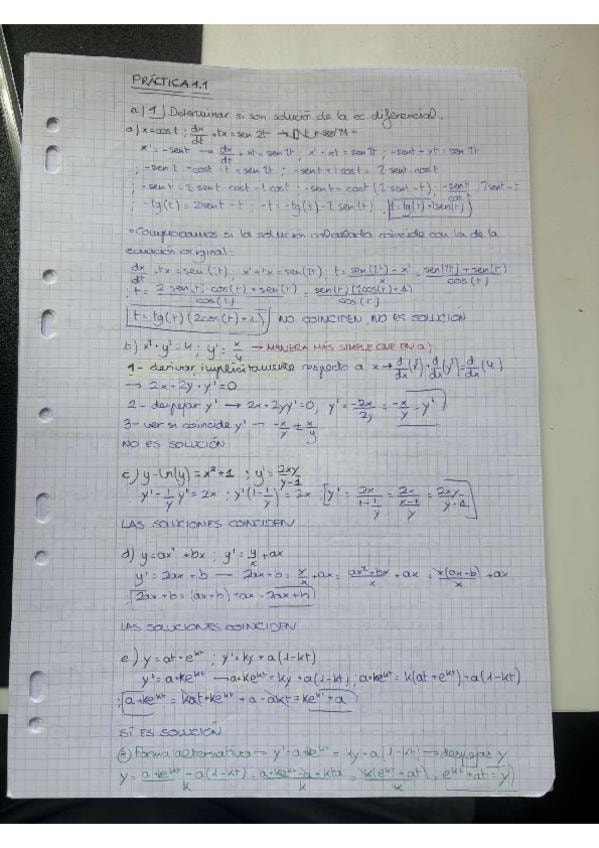 PRÁCTICA 1.1
a) 1) Determinar si son solució de la ec. diferencial.
a) x = cos t ; dx/dt + tx = sen 2t →
x' = -sent → dx/dt + xt = sen 2t ; x' + xt = sen 2t ; -sent + xt = sen 2t
; -sent + cost · t = sen 2t ; -sent + t cost = 2 sent · cost
; -sent = 2 sent cost - t cost ; -sent = cost (2 sent - t) ; -sent/cost = 2sent - t
; -tg(t) = 2sent - t ; -t = -tg(t) - 2 sen(t) ;
• Comprobamos si la solución coincide con la de la
ecuación original:
dx/dt + tx = sen(2t) ; x' + tx = sen(2t) ; t = sen(2t) - x'/x = sen(2t) + sen(t)/cos(t)
; t = 2 sen(t) · cos(t) + sen(t)/cos(t) = sen(t) (2cos(t) + 1)/cos(t)
t = tg(t) (2cos(t) + 1) NO COINCIDEN, NO ES SOLUCIÓN
b) x² + y² = 4 ; y' = x/y → MANERA MÁS SIMPLE QUE EN a)
1 - derivar implícitamente respecto a x → d/dx (x²) + d/dx (y²) = d/dx (4)
→ 2x + 2y · y' = 0
2 - despejar y' → 2x + 2yy' = 0, y' = -2x/2y = -x/y = y'
3 - ver si coincide y' → -x/y ≠ x/y
NO ES SOLUCIÓN
c) y - ln(y) = x² + 1 ; y' = 2xy/y-1
y' - 1/y y' = 2x ; y' (1 - 1/y) = 2x ; y' = 2x/1-1/y = 2x/y-1/y = 2xy/y-1
LAS SOLUCIONES COINCIDEN
d) y = ax² + bx ; y' = y/x + ax
y' = 2ax + b → 2ax + b = y/x + ax = ax² + bx/x + ax = x(ax+b)/x + ax
; 2ax + b = (ax + b) + ax = 2ax + b
LAS SOLUCIONES COINCIDEN
e) y = at + e^kt ; y' = ky + a(1-kt)
y' = a + ke^kt → a + ke^kt = ky + a(1-kt) ; a + ke^kt = k(at + e^kt) + a(1-kt)
; a + ke^kt = kat + ke^kt + a - akt = ke^kt + a
SÍ ES SOLUCIÓN
2) Forma alternativa → y' = a + ke^kt = ky + a(1-kt) → despejas y
y = a + ke^kt - a(1-kt)/k = a + ke^kt - a + kta/k = k(e^kt + at)/k = e^kt + at = y